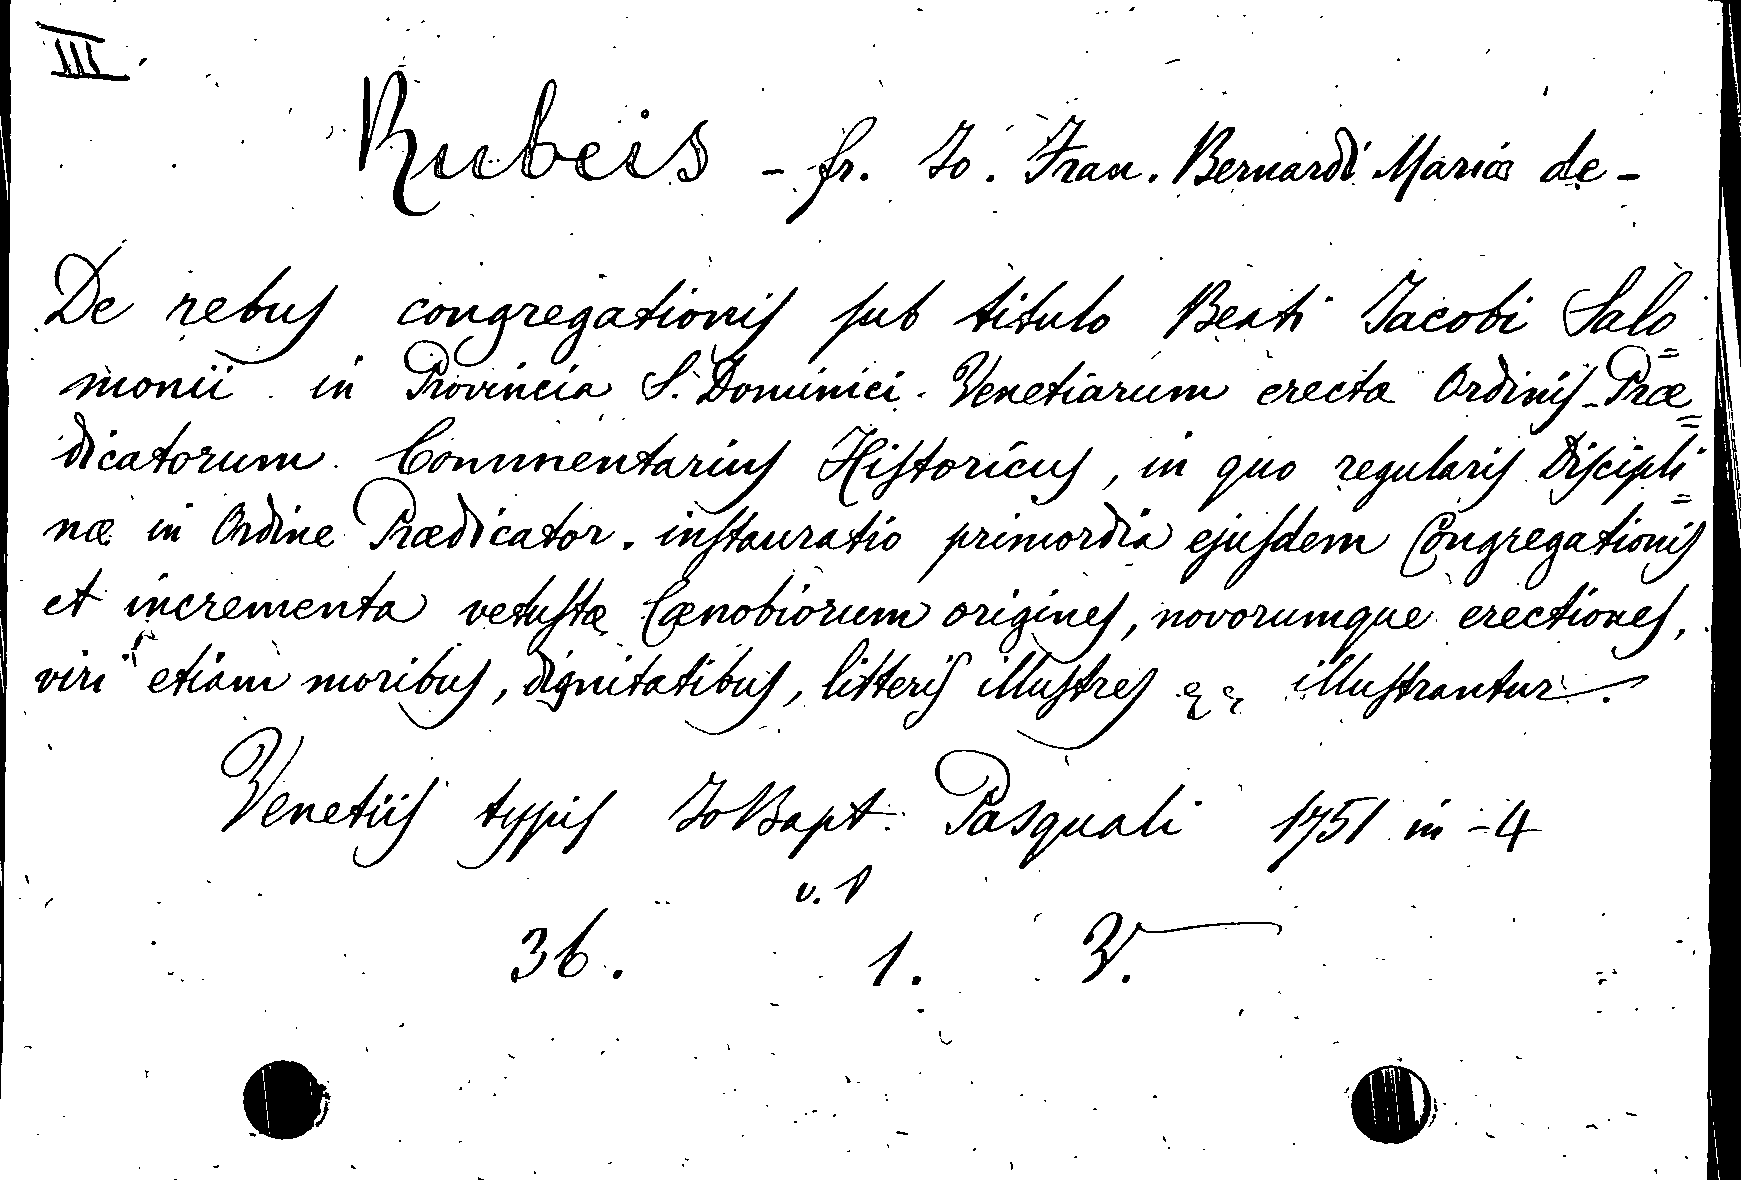 III.
Rubeis - fr. Jo. Fran. Bernardi Mariæ de -
De rebus congregationis sub titulo Beati Jacobi Salo=
monii in Provincia S. Dominici Venetiarum erectæ Ordinis Præ=
dicatorum Commentarius Historicus, in quo regularis Discipli=
næ in Ordine Prædicator. instauratio primordia ejusdem Congregationis
et incrementa vetustæ Cœnobiorum origines, novorumque erectiones,
viri etiam moribus, dignitatibus, litteris illustres illustrantur.
Venetiis typis Jo Bapt. Pasquali 1751 in - 4
v. 1
36. 1. V.